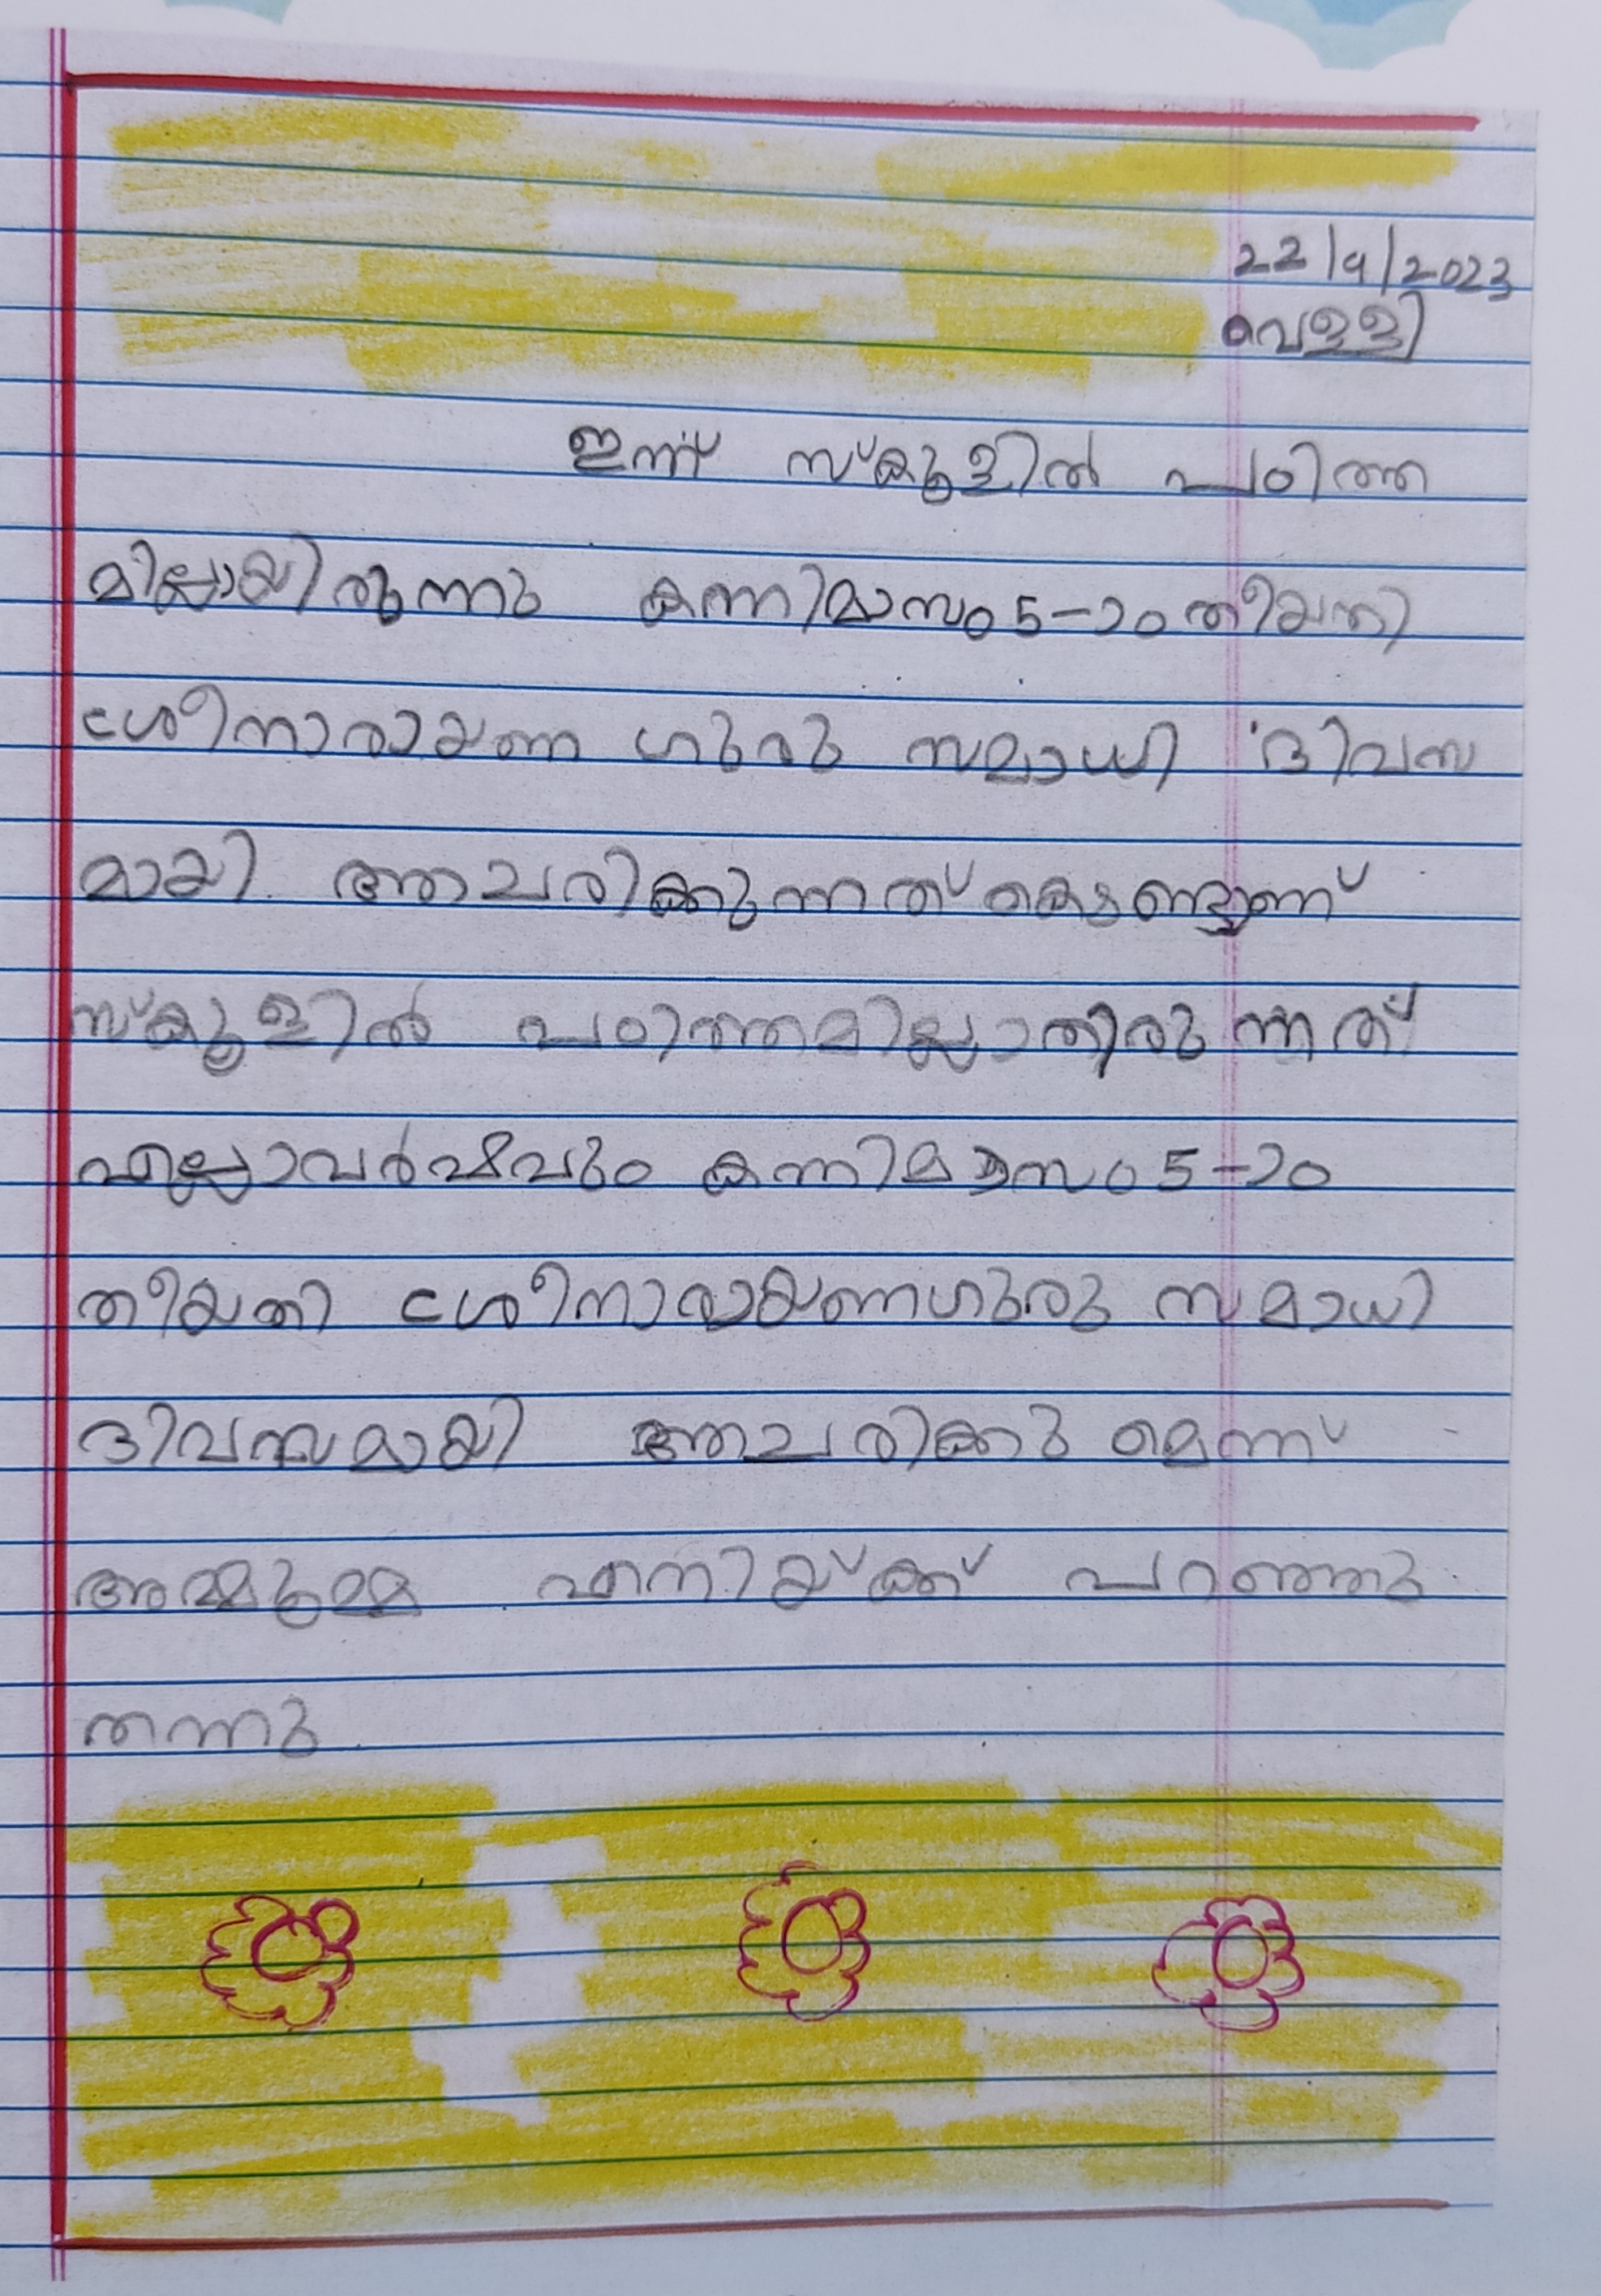 22/9/2023
വെള്ളി
ഇന്ന് സ്കൂളിൽ പഠിത്ത
മില്ലായിരുന്നു കന്നിമാസം 5-ാം തീയതി
ശ്രീനാരായണ ഗുരു സമാധി ദിവസ
മായി. ആചരിക്കുന്നത് കൊണ്ടാണ്
സ്കൂളിൽ പഠിത്തമില്ലാതിരുന്നത്
എല്ലാവർഷവും കന്നിമാസം 5-ാം
തീയതി ശ്രീനാരായണഗുരു സമാധി
ദിവസമായി ആചരിക്കുമെന്ന്
അമ്മുമ്മ എനിയ്ക്ക് പറഞ്ഞു
തന്നു.